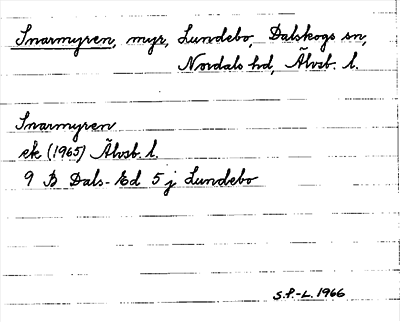 Snarmyren, myr, Lundebo, Dalskogs sn,
Nordals hd, Älvsb. l.
Snarmyren
ek (1965) Älvsb. l.
9 B Dals-Ed 5 j Lundebo
S.F.-L. 1966